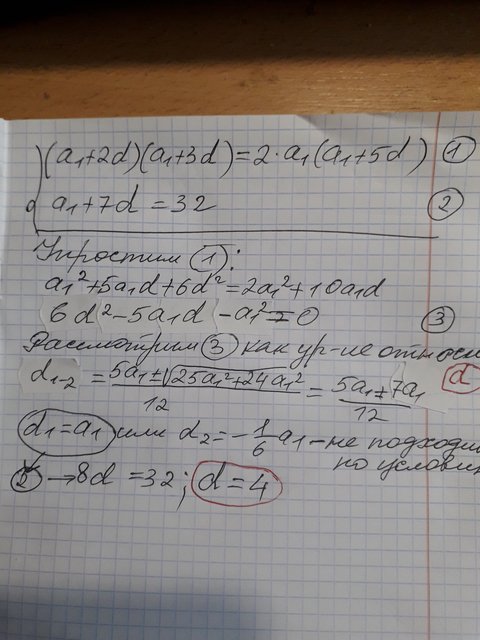 (a₁+2d)(a₁+3d)=2·a₁(a₁+5d) ①
a₁+7d=32 ②
Упростим ①:
a₁²+5a₁d+6d²=2a₁²+10a₁d
6d²-5a₁d-a₁²=0 ③
Рассмотрим ③ как ур-ие относи
d₁₋₂ = (5a₁±√(25a₁²+24a₁²))/12 = (5a₁±7a₁)/12 d
d₁=a₁ или d₂=-1/6 a₁ - не подходи
по услови
② → 8d=32; d=4